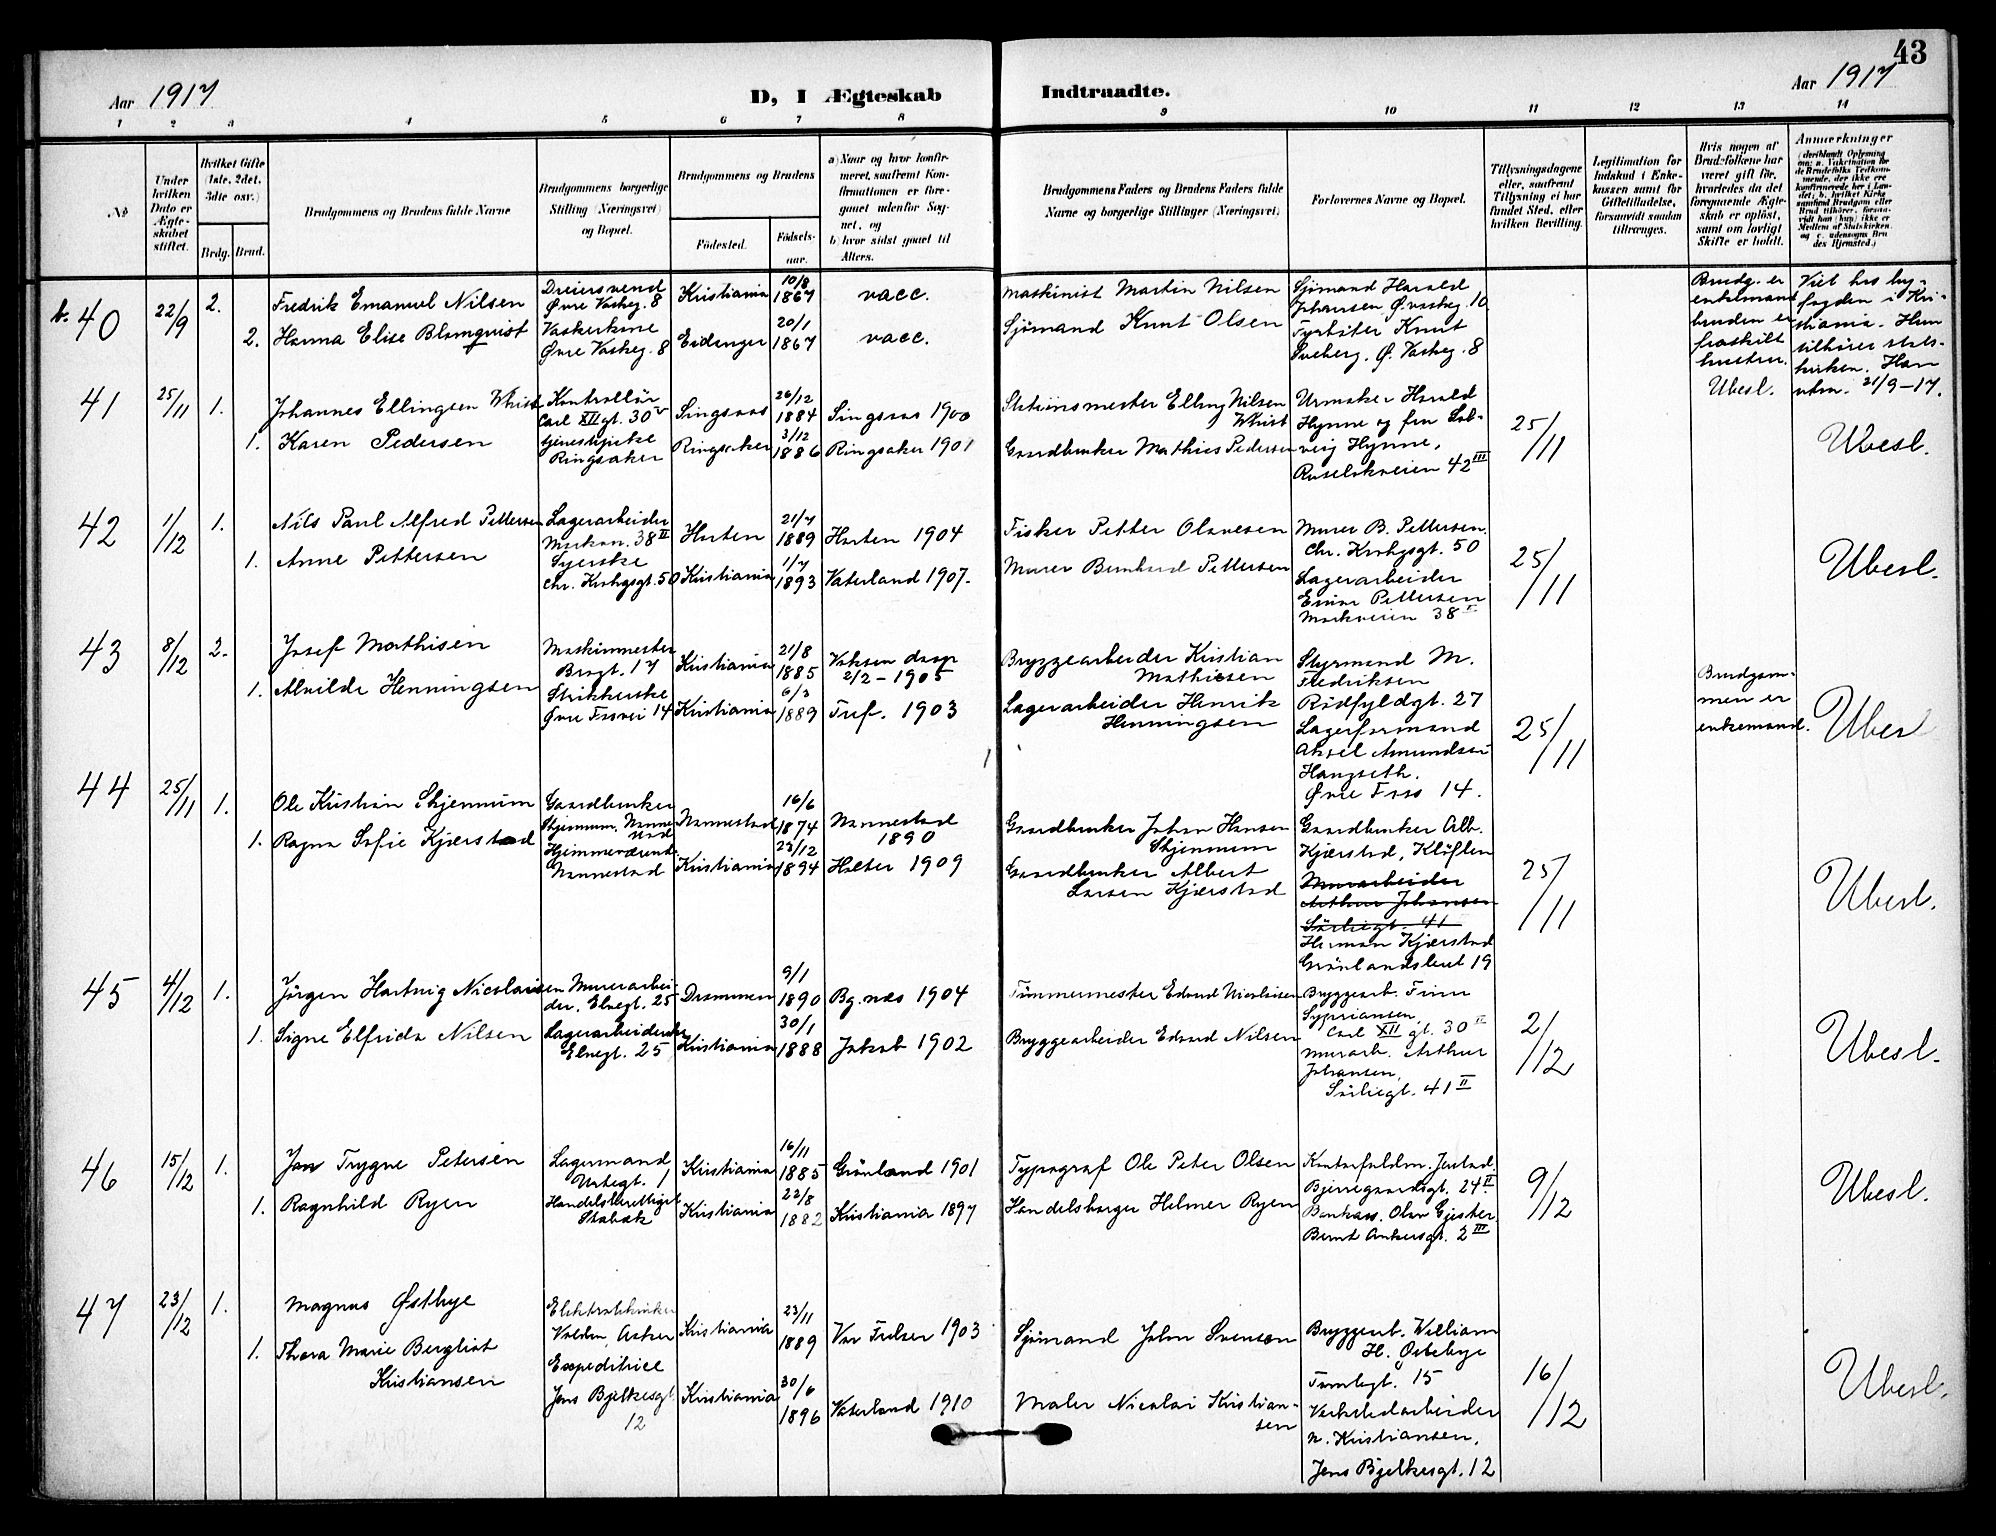 43
Aar 1917
D, I Ægteskab
Indtraadte.
Aar 1917
1 2 3 4 5 6 7 8 9 10 11 12 13 14
No
Under hvilken Dato er Ægteskabet stiftet.
Hvilket Gifte (1ste, 2det, 3die osv.)
Brdg. Brud.
Brudgommens og Brudens fulde Navne
Brudgommens borgerlige Stilling (Næringsvei) og Bopæl.
Brudgommens og Brudens
Fødested.
Fødselsaar.
a) Naar og hvor konfirmeret, saafremt Konfirmationen er foregaaet udenfor Sognet, og
b) hvor sidst gaaet til Alters.
Brudgommens Faders og Brudens Faders fulde Navne og borgerlige Stillinger (Næringsvei)
Forlovernes Navne og Bopæl.
Tillysningsdagene eller, saafremt Tillysning ei har fundet Sted, efter hvilken Bevilling.
Legitimation for Indskud i Enkekassen samt for Giftetilladelse, forsaavidt saadan tiltrænges.
Hvis nogen af Brudefolkene har været gift før, hvorledes da det foregaaende Ægteskab er opløst, samt om lovligt Skifte er holdt.
Anmærkninger
b. 40 22/9 2. Fredrik Emanuel Nilsen
Dreiersvend
Øvre Vaskeg. 8
Kristiania 10/8 1867 vacc.
Maskinist Martin Nilsen
Sjømand Harald
Johansen Ø. Vaskeg. 10
2. Hanna Elise Blomqvist
Vaskerkone
Øvre Vaskeg. 8
Eidanger 20/1 1867 vacc.
Sjömand Knut Olsen
Fyrböter Knut
Sveberg, Ø. Vaskeg. 8
Brudg. er
enkemand
bruden er
fraskilt
hustru.
Ubesl.
Viet hos by-
fogden i Kri-
stiania. Hun
tilhører stats-
kirken. Han
utm. 21/9-17.
41 25/11 1. Johannes Ellingsen Whist
Kontrollör
Carl XII gt. 30 V
Singsaas 26/12 1884 Singsaas 1900
Stationsmester Elling Nilsen
Whist
Urmaker Harald
Hynne og fru Sol-
veig Hynne,
Ruseløkveien 42 III
1. Karen Pedersen
Ringsaker
Ringsaker 3/12 1886 Ringsaker 1901
Gaardbruker Mathias Pedersen
25/11
Ubesl.
42 1/12 1. Nils Paul Alfred Pettersen
Lagerarbeider
Markvn. 38 II
Horten 21/7 1889 Horten 1904
Fisker Petter Olavesen
Murer B. Pettersen.
Chr. Krohgsgt. 50
1. Anne Pettersen
Syerske
Chr. Krohgsgt. 50
Kristiania 1/7 1893 Vaterland 1907.
Murer Bernhard Pettersen
Lagerarbeider
Einar Pettersen
Markveien 38 I
25/11
Ubesl.
43 8/12 2. Josef Mathisen
Maskinmester
Brugt. 17
Kristiania 21/8 1885 Voksen daap
2/2 - 1905
Bryggearbeider Kristian
Mathiesen
Styrmand M.
Fredriksen
Rödfyldgt. 27
1. Alvilde Henningsen
Strikkerske
Øvre Fossvei 14
Kristiania 6/3 1889 Tref. 1903
Lagerarbeider Henrik
Henningsen
Lagerformand
Aksel Amundsen
Haugseth.
Øvre Foss 14.
25/11
Brudgom-
men er
enkemand.
Ubesl
44 25/11 1. Ole Kristian Skjennum
Gaardbruker
Skjennum, Nanne-
stad
Nannestad 16/6 1874 Nannestad
1890
Gaardbruker Johan Hansen
Skjennum
Gaardbruker Alb.
Kjærstad, Klöften
1. Ragna Sofie Kjærstad
Hjemmeværende
Nannestad
Kristiania 23/12 1894 Holter 1909
Gaardbruker Albert
Larsen Kjærstad
Murarbeider
Arthur Johansen
Sörliegt. 41
Herman Kjærstad
Grönlandsleret 19
25/11
Ubesl.
45 4/12 1. Jörgen Hartvig Nicolaisen
Murerarbei-
der, Elvegt. 25
Drammen 9/1 1890 Bg.næs 1904
Tömmermester Edvard Nicolaisen
Bryggearb. Finn
Sypriansen,
Carl XII gt. 30 II
1. Signe Elfrida Nilsen
Lagerarbeiderske
Elvegt. 25
Kristiania 30/1 1888 Jakob 1902
Bryggearbeider Edvard Nilsen
Murarb. Arthur
Johansen,
Sörliegt. 41 II
2/12
Ubesl.
46 15/12 1. Jon Trygve Petersen
Lagermand
Urtegt. 1
Kristiania 16/11 1885 Grönland 1901
Typograf Ole Peter Olsen
Bjerregaardsgt. 24 II
1. Ragnhild Ryen
Handelsberettiget
Stabæk
Kristiania 22/8 1882 Kristiania 1897
Handelsborger Helmer Ryen
Bankass. Olav Gjester
Bernt Ankersgt. 2 III
9/12
Ubesl.
47 23/12 1. Magnus Østbye
Elektrotekniker
Volden, Asker
Kristiania 23/11 1889 Vor Frelser 1903
Sjömand John Svensen
Bryggearb. William
H. Østebye
Tomtegt. 15
1. Thora Marie Bergliot
Kristiansen
Expeditrice
Jens Bjelkesgt
12
Kristiania 30/6 1896 Vaterland 1910
Maler Nicolai Kristian-
sen
Verkstedarbeider
N. Kristiansen,
Jens Bjelkesgt. 12
16/12
Ubesl.